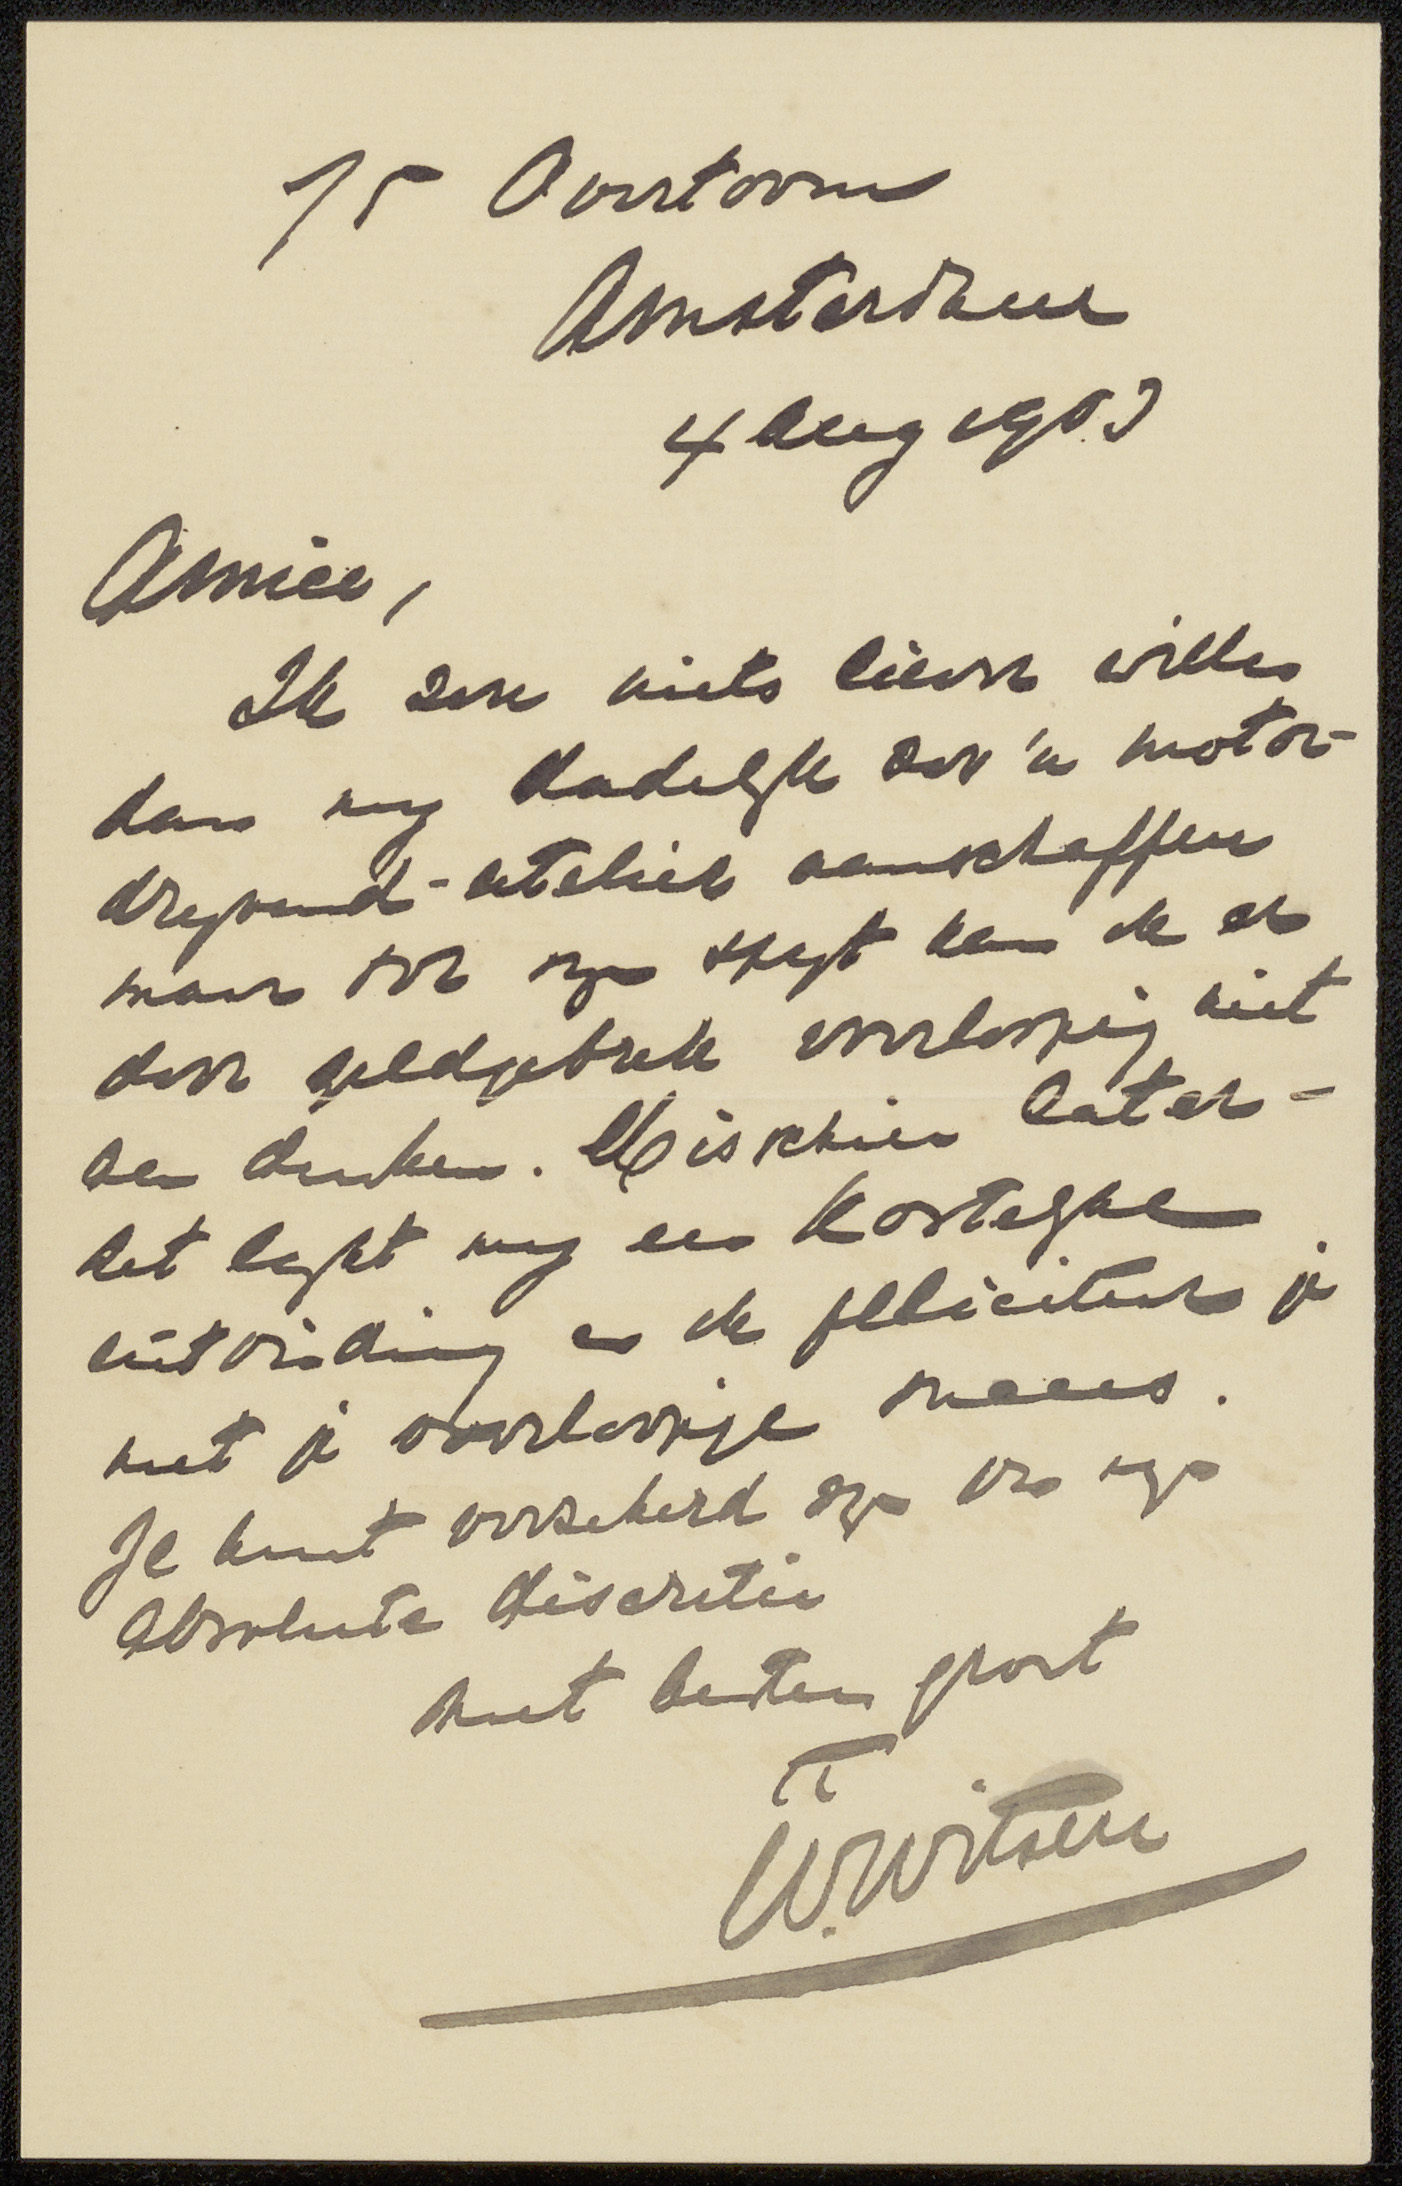 75 Overtoom
Amsterdam
4 Aug 1903
Amice,
Ik zou niets liever willen
dan mij dadelijk zoo'n motor-
drijvend-atelier aanschaffen
maar tot mijn spijt kan ik er
door geldgebrek voorloopig niet
aan denken. Misschien later -
het lijkt mij een kostelijke
uitvinding en ik feliciteer je
met je voorloopige succes.
Je kunt verzekerd zijn van mijn
absolute discretie
met besten groet
tt
W. Witsen